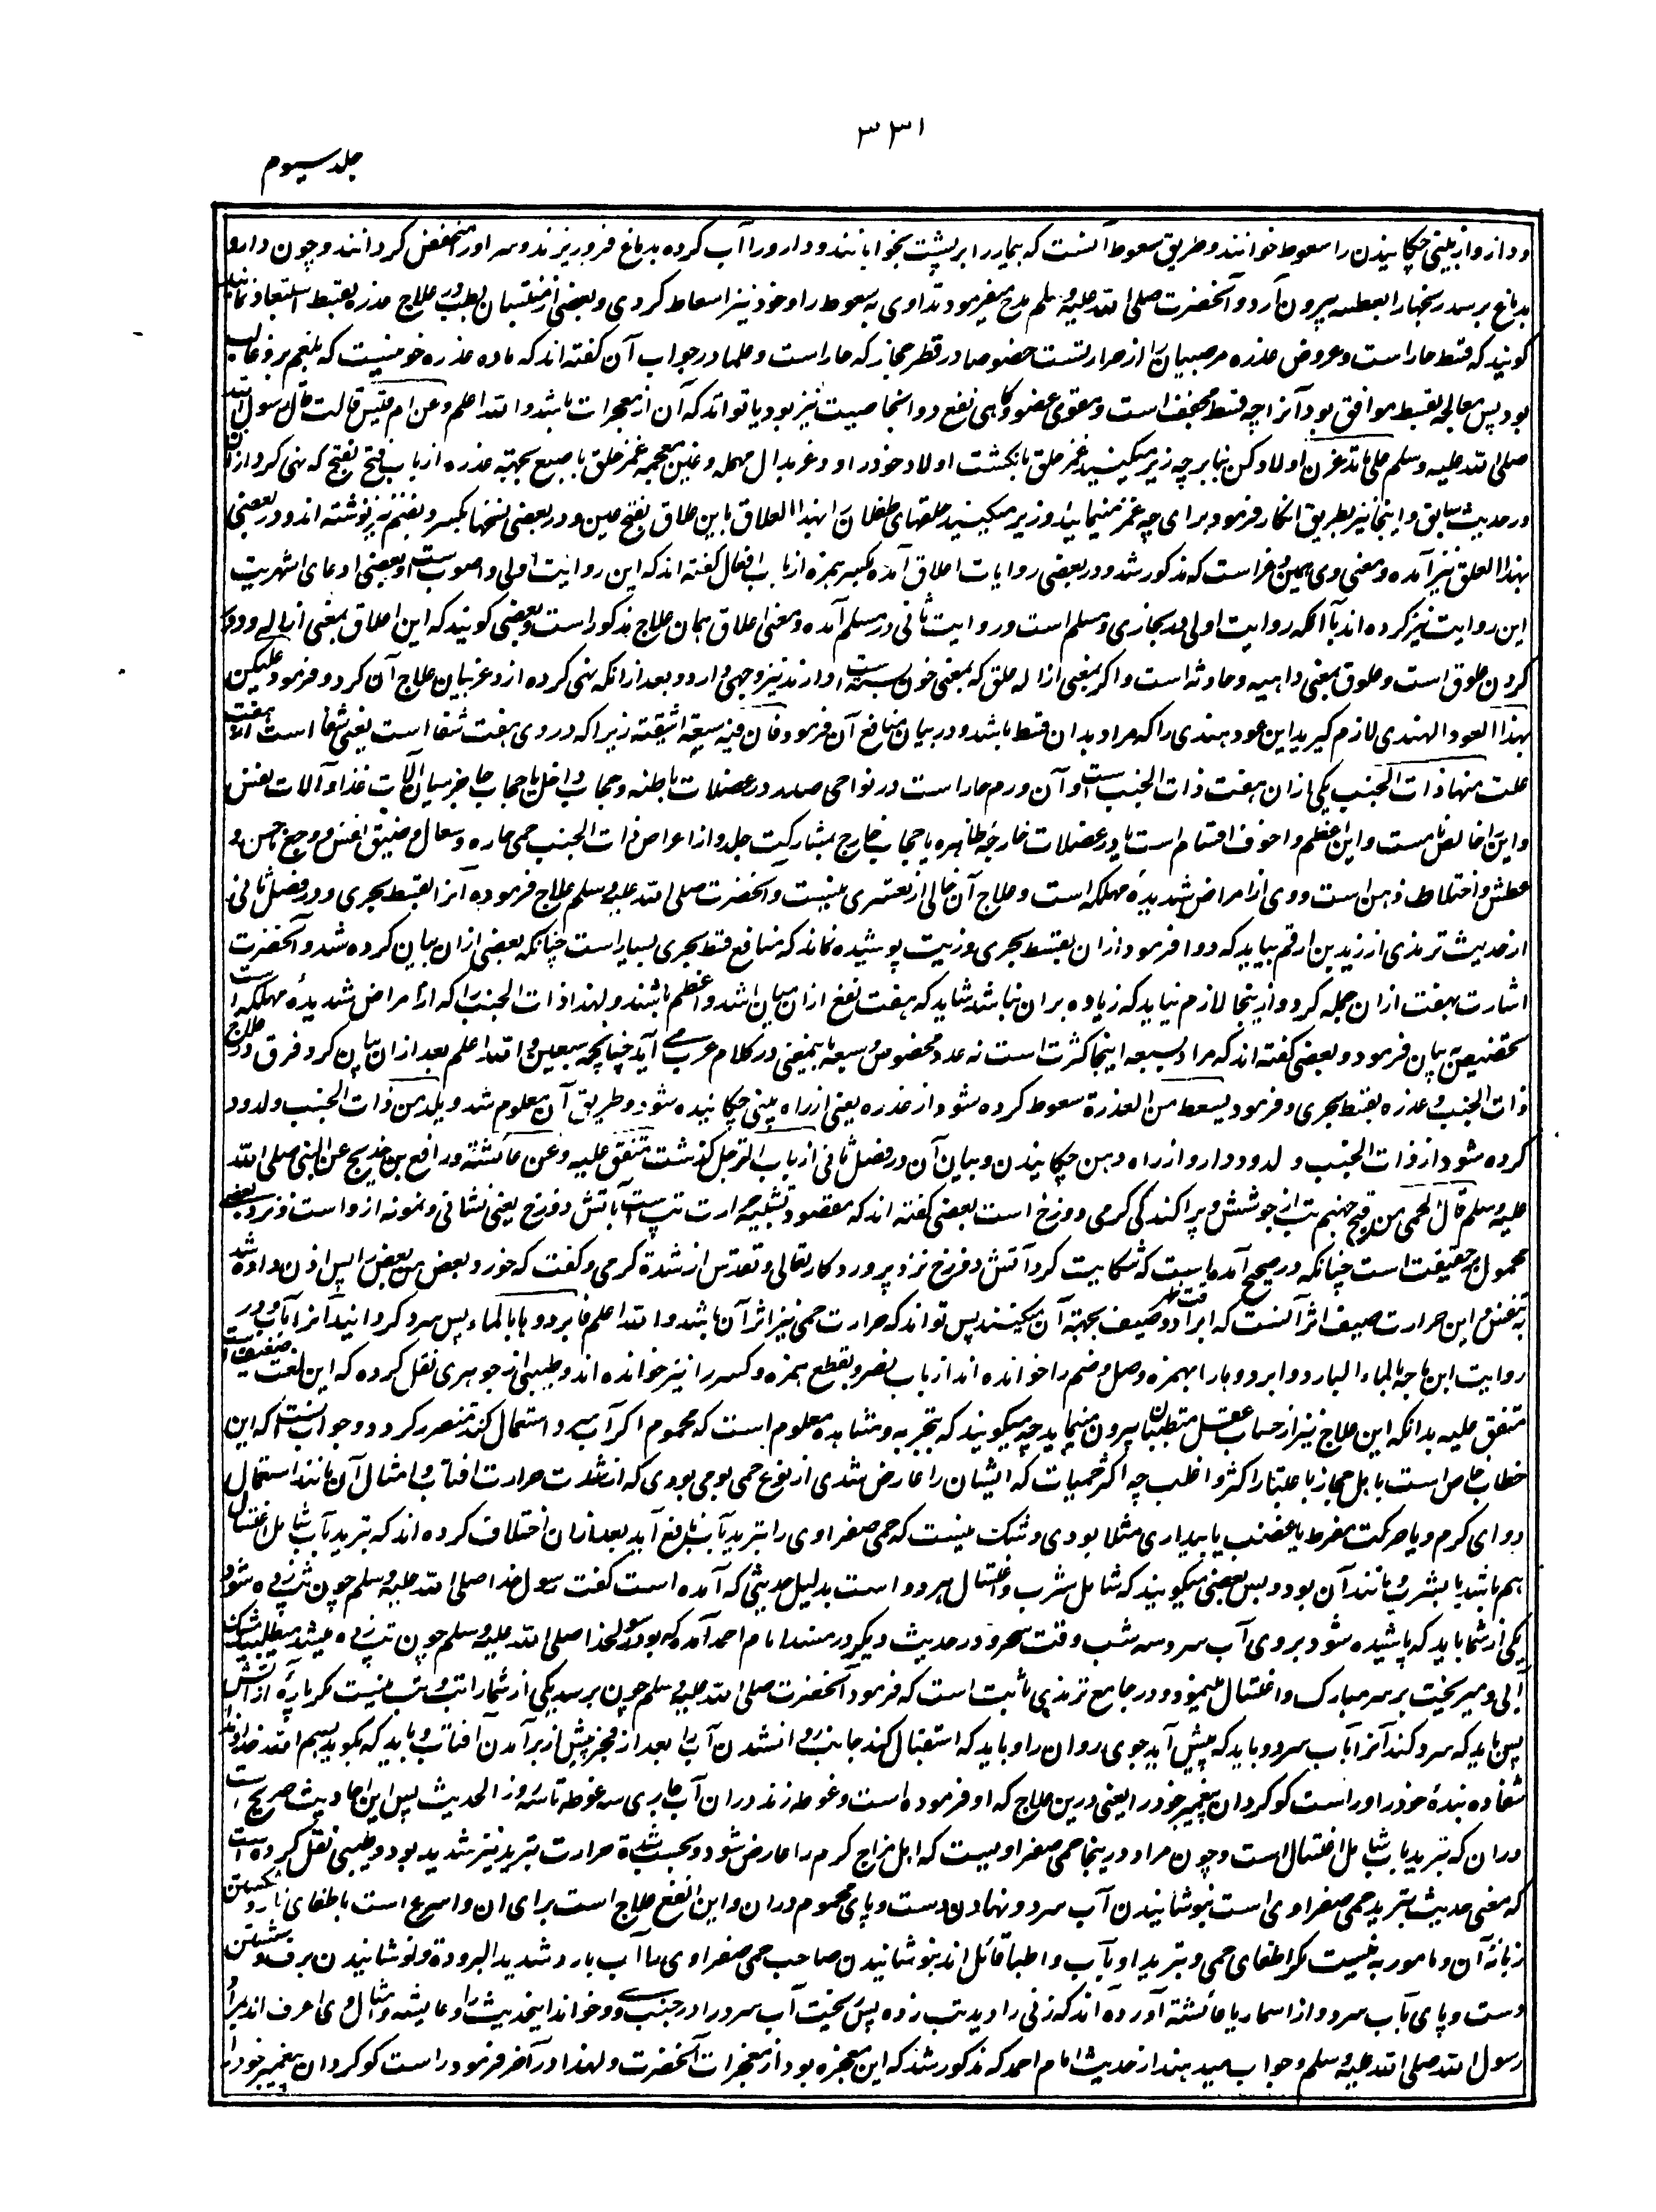 ۳۳۱
جلد سیوم
و دارو از بینی چکانیدن را سعوط خوانند و طریق سعوط آنست که بیمار را بر پشت بخوابانند و دارو را آب کرده بدماغ فرو ریزند و سر او را منخفض گردانند و چون دارو
بدماغ برسد رنجها را بعطسه بیرون آرد و آنحضرت صلی الله علیه وسلم مدح میفرمود تداوی به سعوط را و خود نیز اسعاط کردی و بعضی از منتسبان بطب در علاج عذره بقسط استبعاد نمایند
گویند که قسط حار است و عروض عذره مر صبیان را از حرارتست خصوصا در قطر حجاز که حار است و علما در جواب آن گفته اند که ماده عذره خونیست که بلغم بر و غالب
بود پس معالجه بقسط موافق بود آنرا چه قسط مجفف است و مقوی عضو و گاهی نفع دوا بخاصیت نیز بود یا تواند که آن از معجزات باشد والله اعلم وعن ام قیس قالت قال رسول الله
صلی الله علیه وسلم علی ما تدغرن اولادکن بنا بر چه زیر میکنید غمز حلق بانگشت اولاد خود را و دغر بدال مهمله و غین معجمه غمز حلق باصبع بجهته عذره از باب فتح یفتح که نهی کرد ازان
در حدیث سابق و اینجا نیز بطریق انکار فرمود برای چه غمز مینمایند و زیر میکنید حلقهای طفلان را بهذا العلاق باین علاق بفتح عین و در بعضی نسخها بکسر و بضم نیز نوشته اند و در بعضی
بهذا العلق نیز آمده و معنی وی همین دغر است که مذکور شد و در بعضی روایات اعلاق آمده بکسر همزه از باب افعال گفته اند که این روایت اولی و اصوبست و بعضی ادعای اشهریت
این روایت نیز کرده اند باآنکه روایت اولی در بخاری و مسلم است و روایت ثانی در مسلم آمده و معنی اعلاق همان علاج مذکور است و بعضی گویند که این اعلاق بمعنی ازاله و دور
کردن علوق است و علوق بمعنی داهیه و حادثه است و اگر بمعنی ازاله علق که بمعنی خون بسته است دارند نیز وجهی دارد و بعد از انکه نهی کرده از دغر بیان علاج آن کرد و فرمود علیکن
بهذا العود الهندی لازم گیرید این عود هندی را که مراد بدان قسط باشد و در بیان منافع آن فرمود فان فیه سبعة اشفیة زیرا که در وی هفت شفا است یعنی شفا است از هفت
علت منها ذات الجنب یکی ازان هفت ذات الجنب است و آن ورم حار است در نواحی صدر در عضلات باطنه و حجاب داخل یا حجاب حاجز میان آلات غذا و آلات نفس
و این را خالص نامست و این اعظم و اخوف اقسام است یا در عضلات خارجۀ ظاهره یا حجاب خارج بمشارکت جلد و از اعراض ذات الجنب حمی حاره و سعال و ضیق النفس و وجع ناخس و
عطش و اختلاط ذهن است و وی از امراض شدیدۀ مهلکه است و علاج آن خالی از تعسری نیست و آنحضرت صلی الله علیه وسلم علاج فرموده آنرا بقسط بحری و در فصل ثانی
از حدیث ترمذی از زید بن ارقم بیاید که دوا فرمود ازان بقسط بحری و زیت پوشیده نماند که منافع قسط بحری بسیار است چنانکه بعضی ازان بیان کرده شد و آنحضرت
اشارت بهفت ازان جمله کرد و ازینجا لازم نیاید که زیاده بران نباشد شاید که هفت نفع ازان میان اشد و اعظم باشند و لهذا ذات الجنب را که از امراض شدیدۀ مهلکه است
بتخصیص بیان فرمود و بعضی گفته اند که مراد بسبعه اینجا کثرت است نه عدد مخصوص و سبعه باین معنی در کلام عرب می آید چنانچه سبعین والله اعلم بعد ازان بیان کرد فرق در علاج
ذات الجنب و عذره بقسط بحری و فرمود یسعط من العذرة سعوط کرده شود از عذره یعنی از راه بینی چکانیده شود و طریق آن معلوم شد و یلد من ذات الجنب و لدود
کرده شود از ذات الجنب و لدود دارو از راه دهن چکانیدن و بیان آن در فصل ثانی از باب الترجل گذشت متفق علیه وعن عائشة و رافع بن خدیج عن النبی صلی الله
علیه وسلم قال الحمی من فیح جهنم تب از جوشش و پراکندگی گرمی دوزخ است بعضی گفته اند که مقصود تشبیه حرارت تپ است بآتش دوزخ یعنی نشانی و نمونه ازو است و نزد بعضی
محمول بر حقیقت است چنانکه در صحیح آمده است که شکایت کرد آتش دوزخ نزد پروردگار تعالی و تقدس از شدة گرمی و گفت که خورد بعض من بعض را پس اذن داده شد
به تنفس و این حرارت صیف اثر آنست که ابراد در صیف بجهته آن میکنند پس تواند که حرارت حمی نیز اثر آن باشد والله اعلم فابردوها بالماء پس سرد گردانید آنرا بآب و در
روایت ابن ماجه بالماء البارد و ابردوها را بهمزه وصل و ضم را خوانده اند از باب نصر و بقطع همزه و کسر را نیز خوانده اند و طیبی از جوهری نقل کرده که این لغت ضعیف است
متفق علیه بدانکه این علاج نیز از حساب عقل متطببان بیرون مینماید چه میگویند که بتجربه و مشاهده معلوم است که محموم اگر آب سرد استعمال کند متضرر گردد و جواب آنست که این
خطاب خاص است باهل حجاز باعتبار اکثر و اغلب چه اکثر حمیات که ایشان را عارض شدی از نوع حمی یومی بودی که از شدت حرارت افتاب و امثال آن مانند استعمال
دوای گرم و یا حرکت مفرط یا غضب یا بیداری مثلا بودی و شک نیست که حمی صفراوی را تبرید بآب نافع آید بعد ازان اختلاف کرده اند که تبرید بآب شامل اغتسال
هم باشد یا بشرب و مانند آن بود و بس بعضی میگویند که شامل شرب و اغتسال هر دو است بدلیل حدیثی که آمده است گفت رسول خدا صلی الله علیه وسلم چون تب زده شود
یکی از شما باید که پاشیده شود بروی آب سرد سه شب وقت سحر و در حدیث دیگر در مسند امام احمد آمده که بود رسولخدا صلی الله علیه وسلم چون تب زده میشد میطلبید مشک
آبی و میریخت بر سر مبارک و اغتسال مینمود و در جامع ترمذی ثابت است که فرمود آنحضرت صلی الله علیه وسلم چون برسد یکی از شما را تب و تب نیست مگر پارۀ از آتش
پس باید که سرد کند آنرا بآب سرد و باید که پیش آید جوی روان را و باید که استقبال کند جانب روانشدن آب را بعد از فجر پیش از برآمدن افتاب و باید که بگوید بسم الله خداوندا
شفا ده بندۀ خود را و راست گو گردان پیغمبر خود را یعنی درین علاج که او فرموده است و غوطه زند دران آب جاری سه غوطه تا سه روز الحدیث پس این احادیث صریح است
دران که تبرید بآب شامل اغتسال است و چون مراد درینجا حمی صفراویست که اهل مزاج گرم را عارض شود و بحسب شدة حرارت تبرید نیز شدید بود و طیبی نقل کرده است
که معنی حدیث تبرید حمی صفراوی است بنوشانیدن آب سرد و نهادن دست و پای محموم دران و این انفع علاج است برای ان و اسرع است باطفای نار و تسکین
زبانۀ آن و مامور به نیست مگر اطفای حمی و تبرید او بآب و اطبا قائل اند بنوشانیدن صاحب حمی صفراوی ماآب بارد شدید البرودة و نوشانیدن برف و شستن
دست و پای بآب سرد و از اسما یا عائشة آورده اند که زنی را دید تب زده پس ریخت آب سرد را در جنب وی و خواند اینحدیث را و عایشه و امثال وی اعرف اند بمراد
رسول الله صلی الله علیه وسلم و جواب میدهند از حدیث امام احمد که مذکور شد که این معجزه بود از معجزات آنحضرت و لهذا در آخر فرمود راست گو گردان پیغمبر خود را